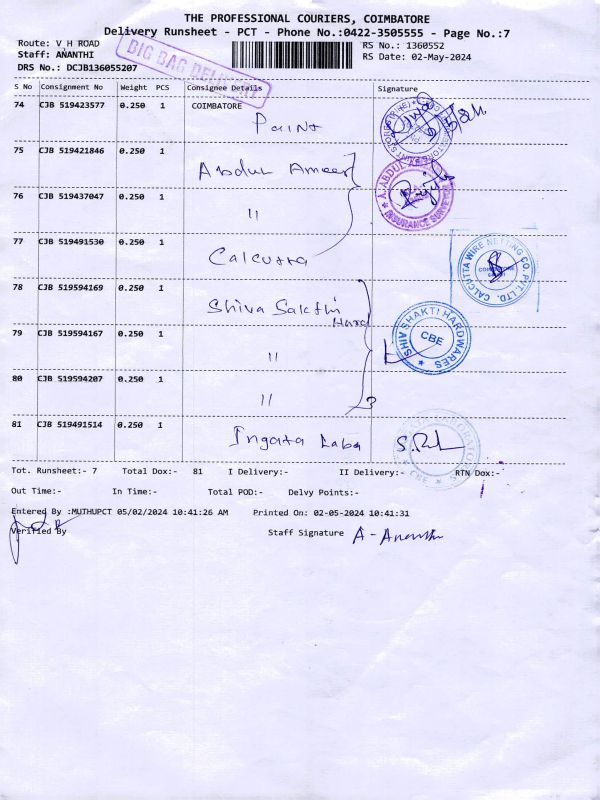 THE PROFESSIONAL COURIERS, COIMBATORE
Delivery Runsheet - PCT - Phone No.:0422-3505555 - Page No.:7
Route: V H ROAD
RS No.: 1360552
Staff: ANANTHI
RS Date: 02-May-2024
DRS No.: DCJB136055207
BIG BAG DELIVERY
S No Consignment No Weight PCS Consignee Details Signature
74 CJB 519423577 0.250 1 COIMBATORE
Paint
75 CJB 519421846 0.250 1
Abdul Ameer
A. ABDUL
INSURANCE SURVEYOR
76 CJB 519437047 0.250 1
"
77 CJB 519491530 0.250 1
Calcutta
CALCUTTA WIRE NETTING CO. PVT. LTD.
78 CJB 519594169 0.250 1
Shiva Sakthi
Hard
SHIV SHAKTI HARDWARES
CBE
79 CJB 519594167 0.250 1
"
80 CJB 519594207 0.250 1
"
3
81 CJB 519491514 0.250 1
Tot. Runsheet:- 7 Total Dox:- 81 I Delivery:- II Delivery:- RTN Dox:-
Out Time:- In Time:- Total POD:- Delvy Points:-
Entered By :MUTHUPCT 05/02/2024 10:41:26 AM Printed On: 02-05-2024 10:41:31
Verified By
Staff Signature A - Ananthi